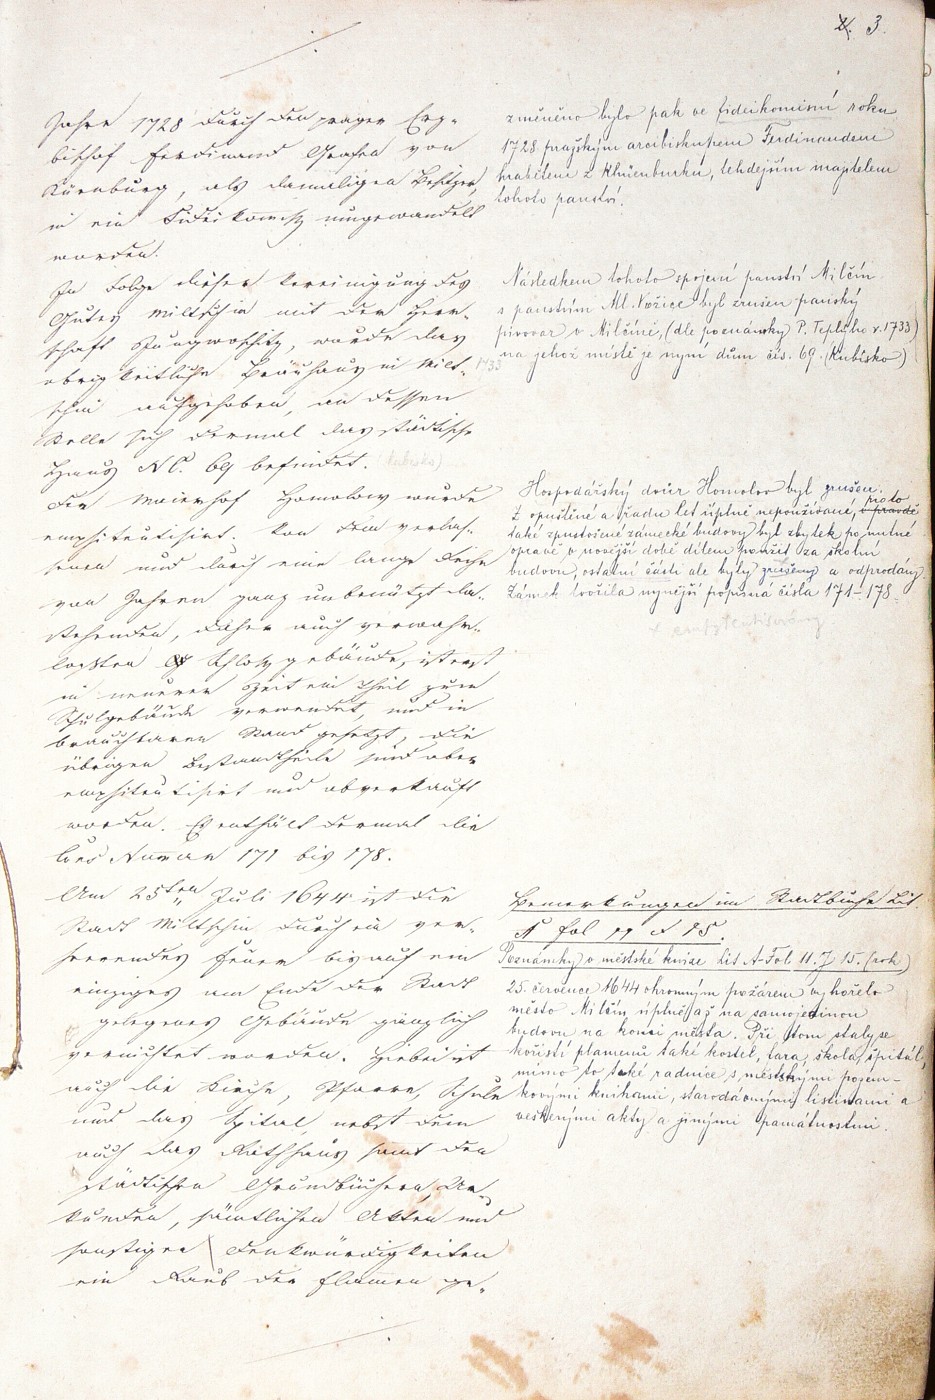 3.
Jahre 1728 durch den prager Erz-
bischof Ferdinand Grafen von
Künburg, als damaligen Besitzer,
in ein Fideikomiß umgewandelt
worden.
In Folge dieser Vereinigung des
Gutes Miltschin mit der Herr-
schaft Jungwoschitz, wurde das
obrigkeitliche Bräuhaus in Milt-
schin aufgehoben, an dessen
Stelle sich dermal das städtische
Haus NC. 69 befindet. (Kubisko)
Der Maierhof Homolow wurde
emphiteutisirt. Von dem verlas-
senen und durch eine lange Reihe
von Jahren ganz unbenützt da-
stehenden, daher auch verwahr-
losten Schloßgebäude, ist erst
in neuerer Zeit ein Theil zum
Schulgebäude verwendet, und in
brauchbaren Stand gesetzt, die
übrigen Bestandtheile sind aber
emphiteutisirt und abverkauft
worden. Es enthält dermal die
Cons Numern 171 bis 178.
Am 25ten Juli 1644 ist die
Stadt Miltschin durch ein ver-
heerendes Feuer bis auf ein
einziges am Ende der Stadt
gelegenes Gebäude gänzlich
vernichtet worden. Hiebei ist
auch die Kirche, Pfarre, Schule
und das Spital, nebst dem
auch das Rathhaus samt den
städtischen Grundbüchern, Ur-
kunden, sämtlichen Akten und
sonstigen Denkwürdigkeiten
ein Raub der Flamen ge-
změněno bylo pak ve fideikomisní roku
1728 pražským arcibiskupem Ferdinandem
hrabětem z Khüenburku, tehdejším majitelem
tohoto panství.
Následkem tohoto spojení panství Milčín
s panstvím Ml. Vožice byl zrušen panský
pivovar v Milčíně, (dle poznámky P. Teplého r. 1733)
na jehož místě je nyní dům čís. 69. (Kubisko)
1733
Hospodářský dvůr Homolov byl zrušen.
Z opuštěné a řadu let úplně nepoužívané, proto
také zpustošené zámecké budovy byl zbytek po nutné
opravě v novější době dílem použit za školní
budovu, ostatní části ale byly zrušeny a odprodány.
Zámek tvořila nynější popisná čísla 171-178.
+ emfyteutisovány
Bemerkungen im Stadtbuche Lit.
A fol 11 & 15.
Poznámky v městské knize Lit A-Fol 11. & 15. (rok)
25. července 1644 ohromným požárem vyhořelo
město Milčín úplně až na samojedinou
budovu na konci města. Při tom staly se
kořistí plamenů také kostel, fara, škola, špitál,
mimo to také radnice s městskými pozem-
kovými knihami, starodávnými listinami a
veškerými akty a jinými památnostmi.